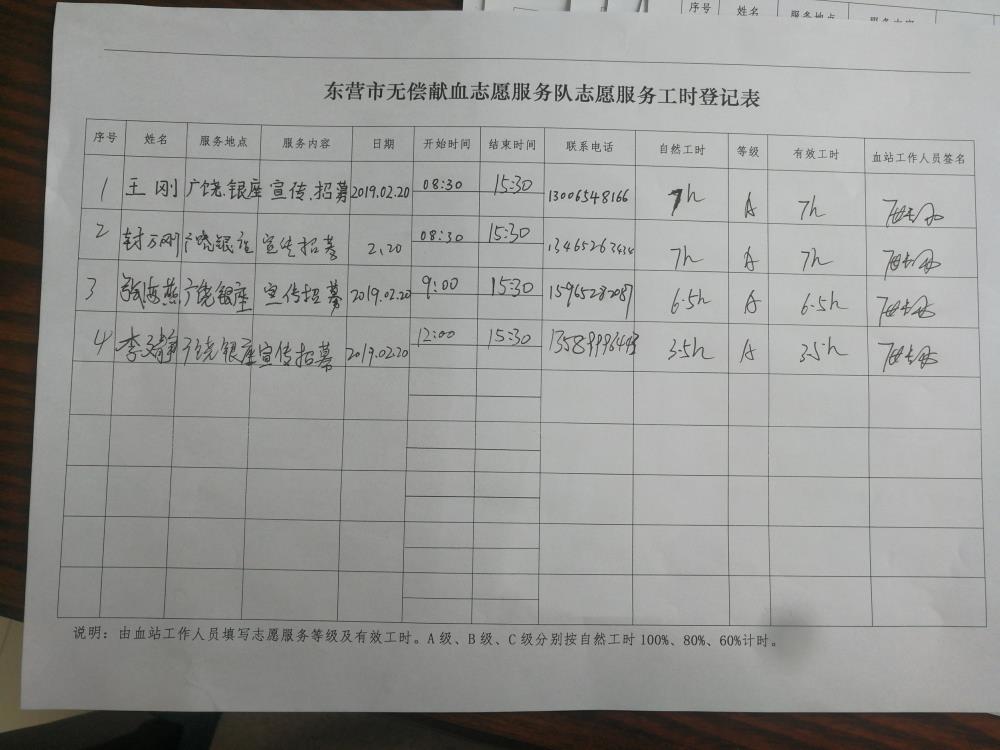 序号 姓名 服务地点
东营市无偿献血志愿服务队志愿服务工时登记表
序号 姓名 服务地点 服务内容 日期 开始时间 结束时间 联系电话 自然工时 等级 有效工时 血站工作人员签名
1 王刚 广饶.银座 宣传.招募 2019.02.20 08:30 15:30 13006548166 7h A 7h
2 封万刚 广饶银座 宣传招募 2.20 08:30 15:30 7h A 7h
3 张海燕 广饶银座 宣传招募 2019.02.20 9:00 15:30 15965282087 6.5h A 6.5h
4 广饶银座 宣传招募 2019.02.20 12:00 15:30 3.5h A 3.5h
说明：由血站工作人员填写志愿服务等级及有效工时。A级、B级、C级分别按自然工时100%、80%、60%计时。